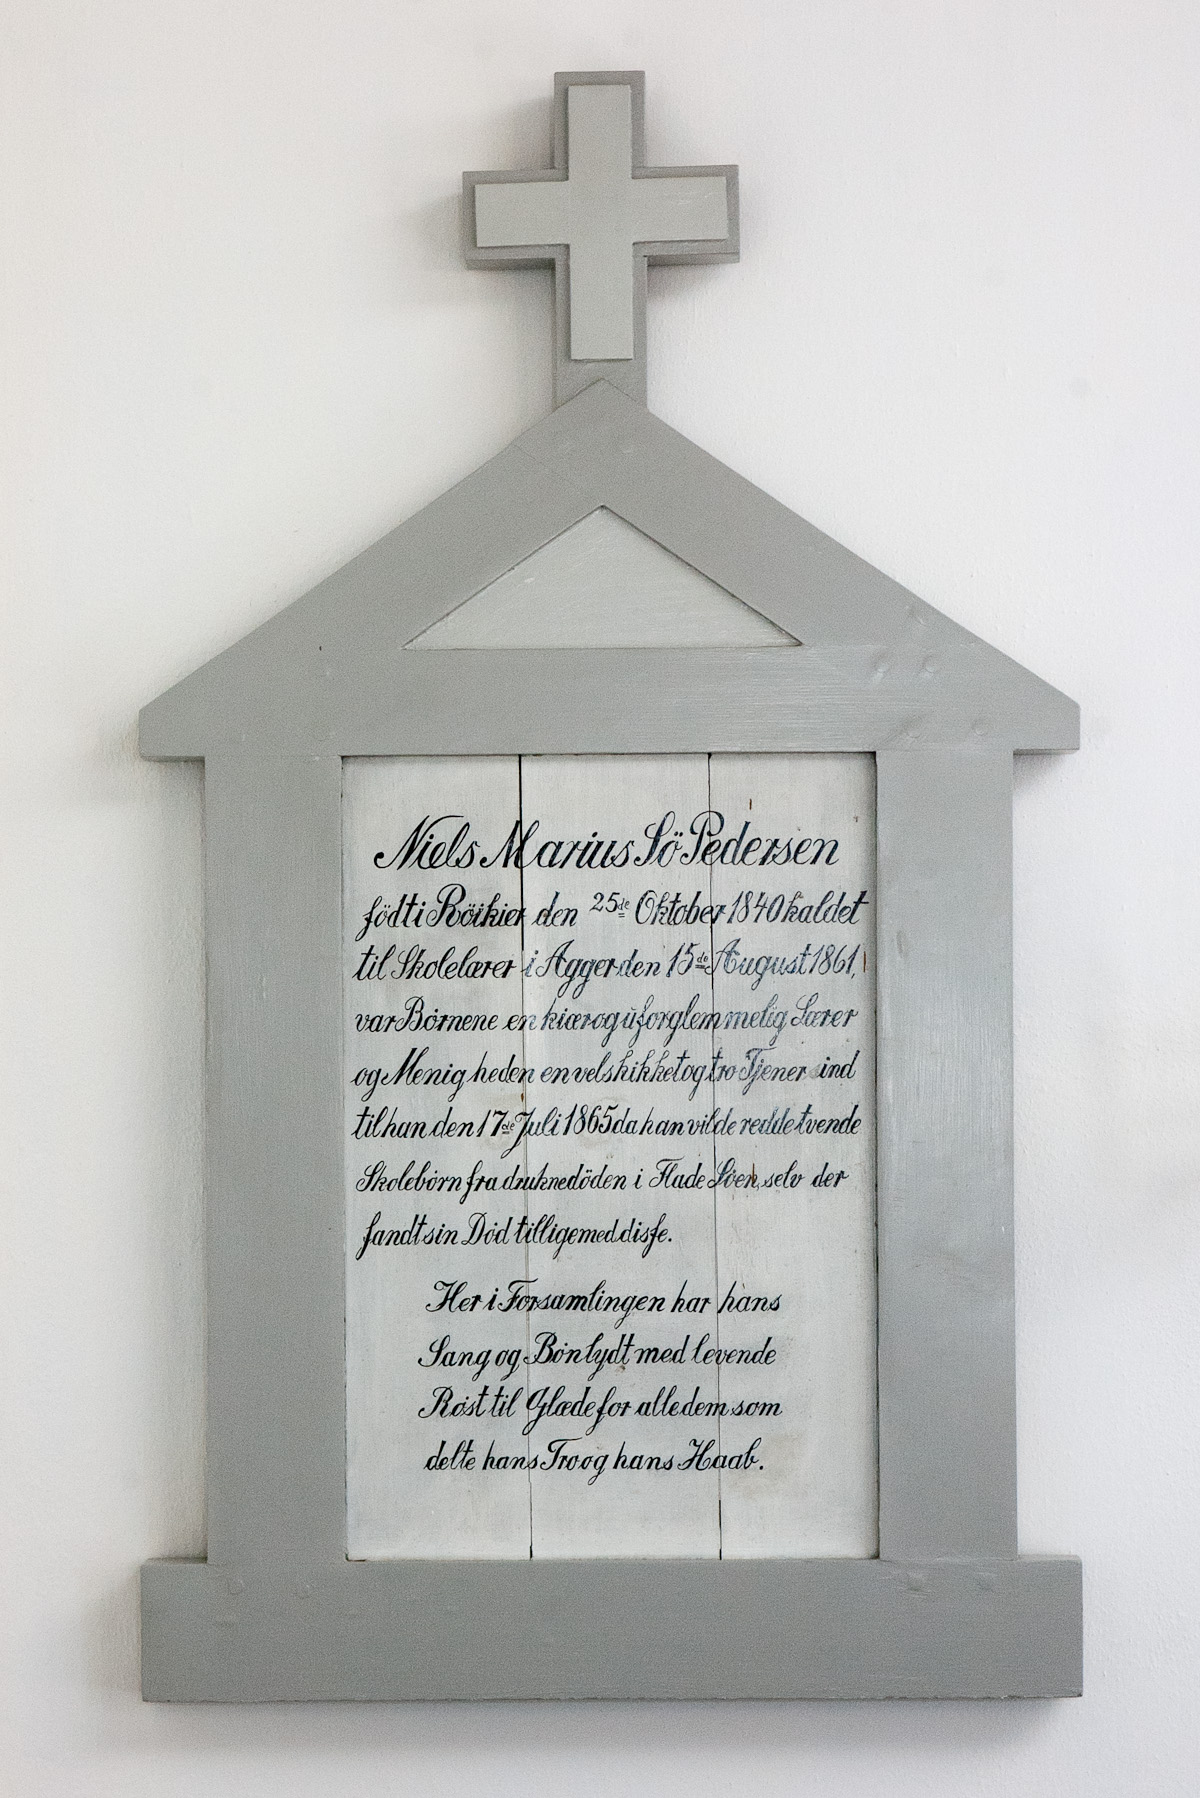 Niels Marius Sö Pedersen
födt i Röikier den 25de Oktober 1840 kaldet
til Skolelærer i Agger den 15de August 1861,
var Börnene en kiær og uforglemmelig Lærer
og Menigheden en velskikket og tro Tjener ind
til han den 17de Juli 1865 da han vilde redde tvende
Skolebörn fra druknedöden i Flade Söen, selv der
fandt sin Död tilligemed disse.
Her i Forsamlingen har hans
Sang og Bön lydt med levende
Röst til Glæde for alle dem som
delte hans Tro og hans Haab.